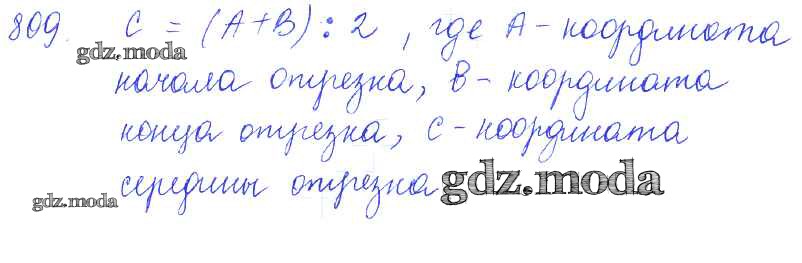 809. C = (A+B) : 2, где A - координата
gdz.moda
начала отрезка, B - координата
конца отрезка, C - координата
середины отрезка gdz.moda
gdz.moda